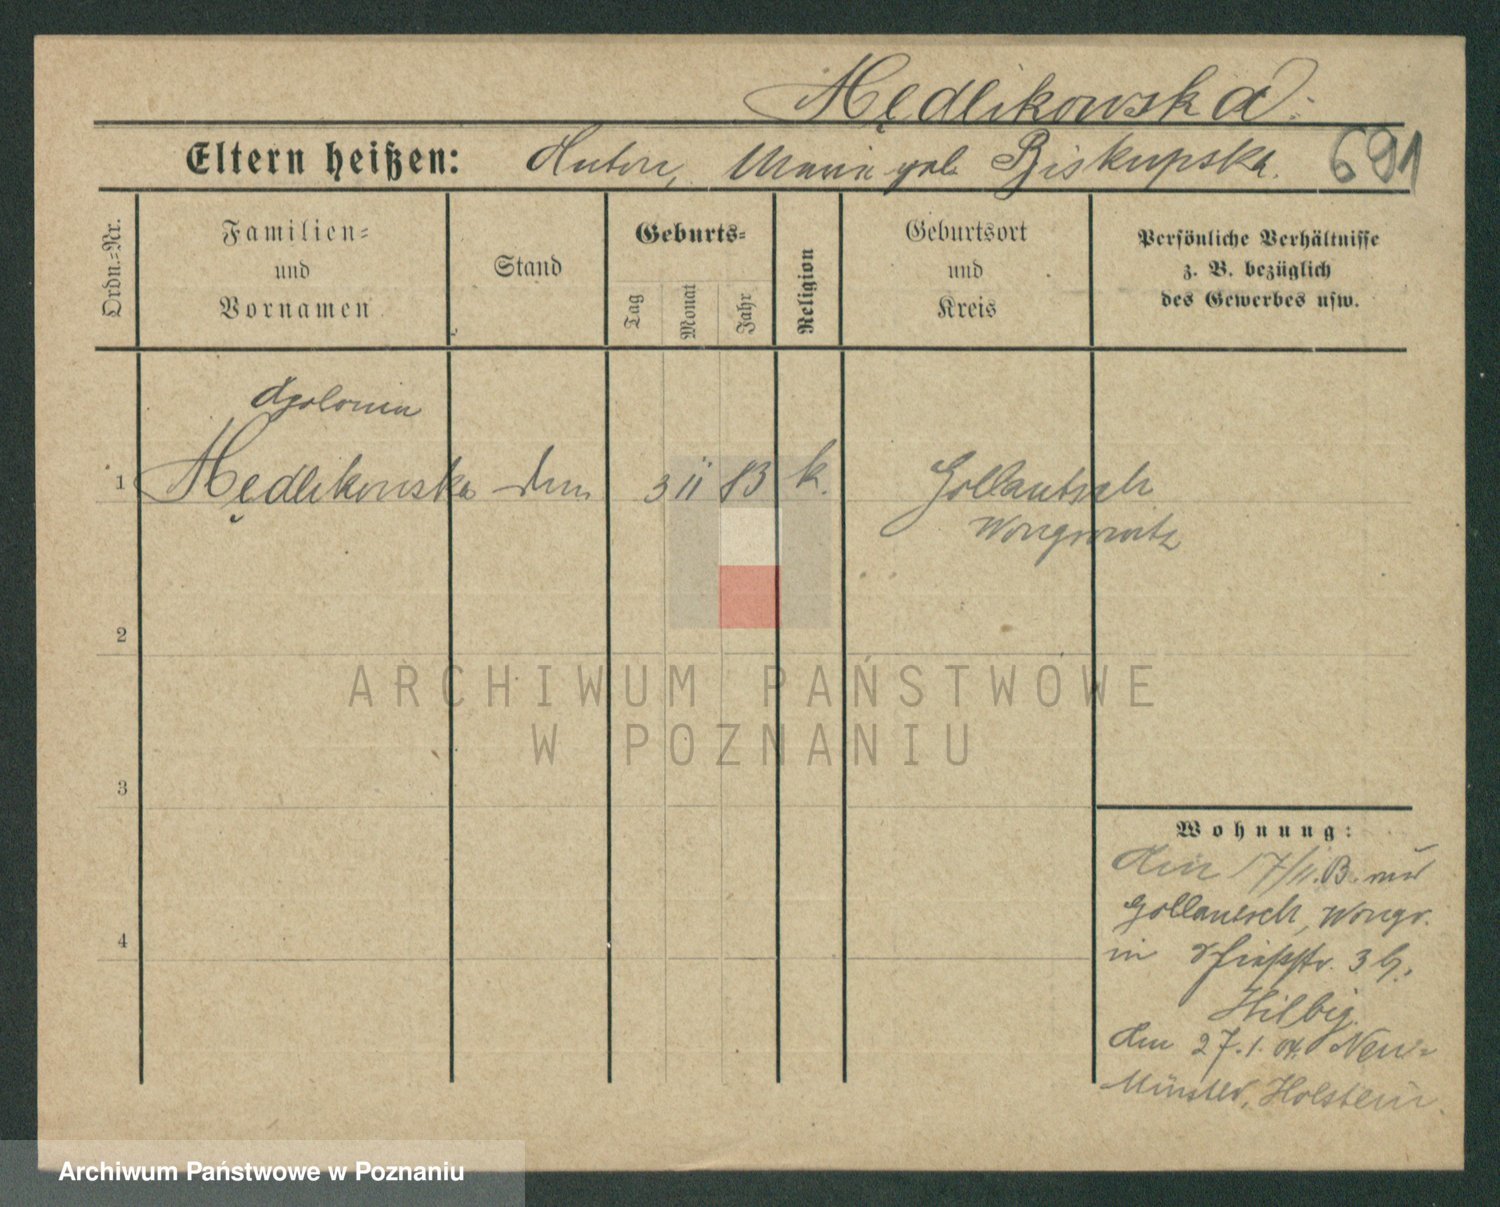 Mędlikowska.
Eltern heißen: Anton, Maria geb. Biskupska. 691
Ordn.-Nr.
Familien-
und
Vornamen
Stand
Geburts-
Tag
Monat
Jahr
Religion
Geburtsort
und
Kreis
Persönliche Verhältnisse
z. B. bezüglich
des Gewerbes usw.
Apolonia
1 Mędlikowska 3 11 83 k. Gollantsch
Wongrowitz
2
3
4
Wohnung:
den 17/11. B. aus
Gollantsch, Wongr.
in 3 b.
Hilbig.
den 27.1.04. Neu-
Münster, Holstein.
ARCHIWUM PAŃSTWOWE
W POZNANIU
Archiwum Państwowe w Poznaniu